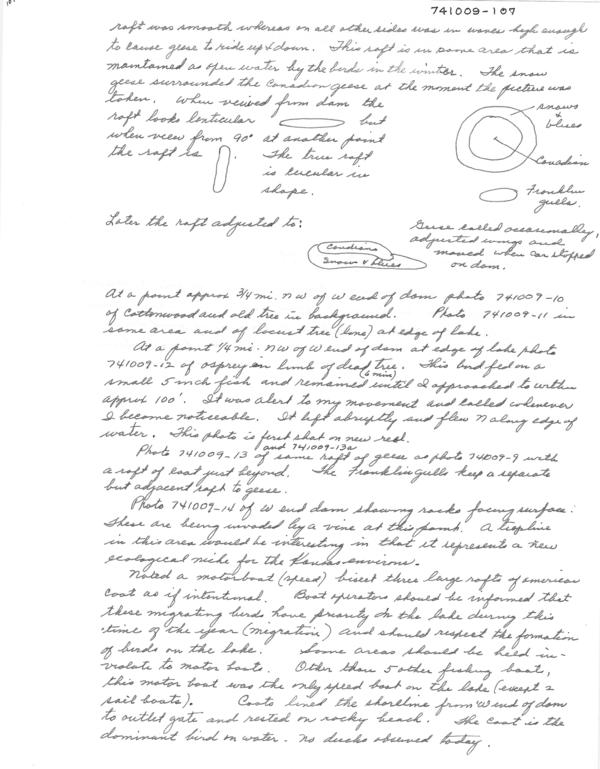 741009-107
raft was smooth whereas on all other sides was in waves high enough
to cause geese to ride up & down. This raft is in same area that is
maintained as open water by the birds in the winter. The snow
geese surrounded the Canadian geese at the moment the picture was
taken. When veiwed from dam the
raft looks lenticular but
when view from 90° at another point
the raft is . The true raft
is circular in
shape.
snows
&
blues
Canadian
Franklin
gulls.
Later the raft adjusted to:
Canadians
Snows & blues
Geese called occasionally,
adjusted wings and
moved when car stopped
on dam.
At a point approx 3/4 mi. NW of W end of dam photo 741009-10
of Cottonwood and old tree in background. Photo 741009-11 in
same area and of locust tree (lone) at edge of lake.
At a point 1/4 mi. NW of W end of dam at edge of lake photo
741009-12 of osprey on limb of dead tree. This bird fed on a
small 5 inch fish (6 min) and remained until I approached to within
approx 100'. It was alert to my movement and called whenever
I become noticeable. It left abruptly and flew N along edge of
water. This photo is first shot on new reel.
Photo 741009-13 and 741009-13a of same raft of geese as photo 741009-9 with
a raft of coot just beyond. The Franklin Gulls keep a separate
but adjacent raft to geese.
Photo 741009-14 of W end dam showing rocks facing surface.
These are being invaded by a vine at this point. A trapline
in this area would be interesting in that it represents a new
ecological niche for the Kansas environs.
Noted a motorboat (speed) bisect three large rafts of american
Coot as if intentional. Boat operators should be informed that
these migrating birds have priority on the lake during this
time of the year (migration) and should respect the formation
of birds on the lake. Some areas should be held in-
violate to motor boats. Other than 5 other fishing boats,
this motor boat was the only speed boat on the lake (except 2
sail boats). Coots lined the shoreline from W end of dam
to outlet gate and rested on rocky beach. The coot is the
dominant bird on water. No ducks observed today.